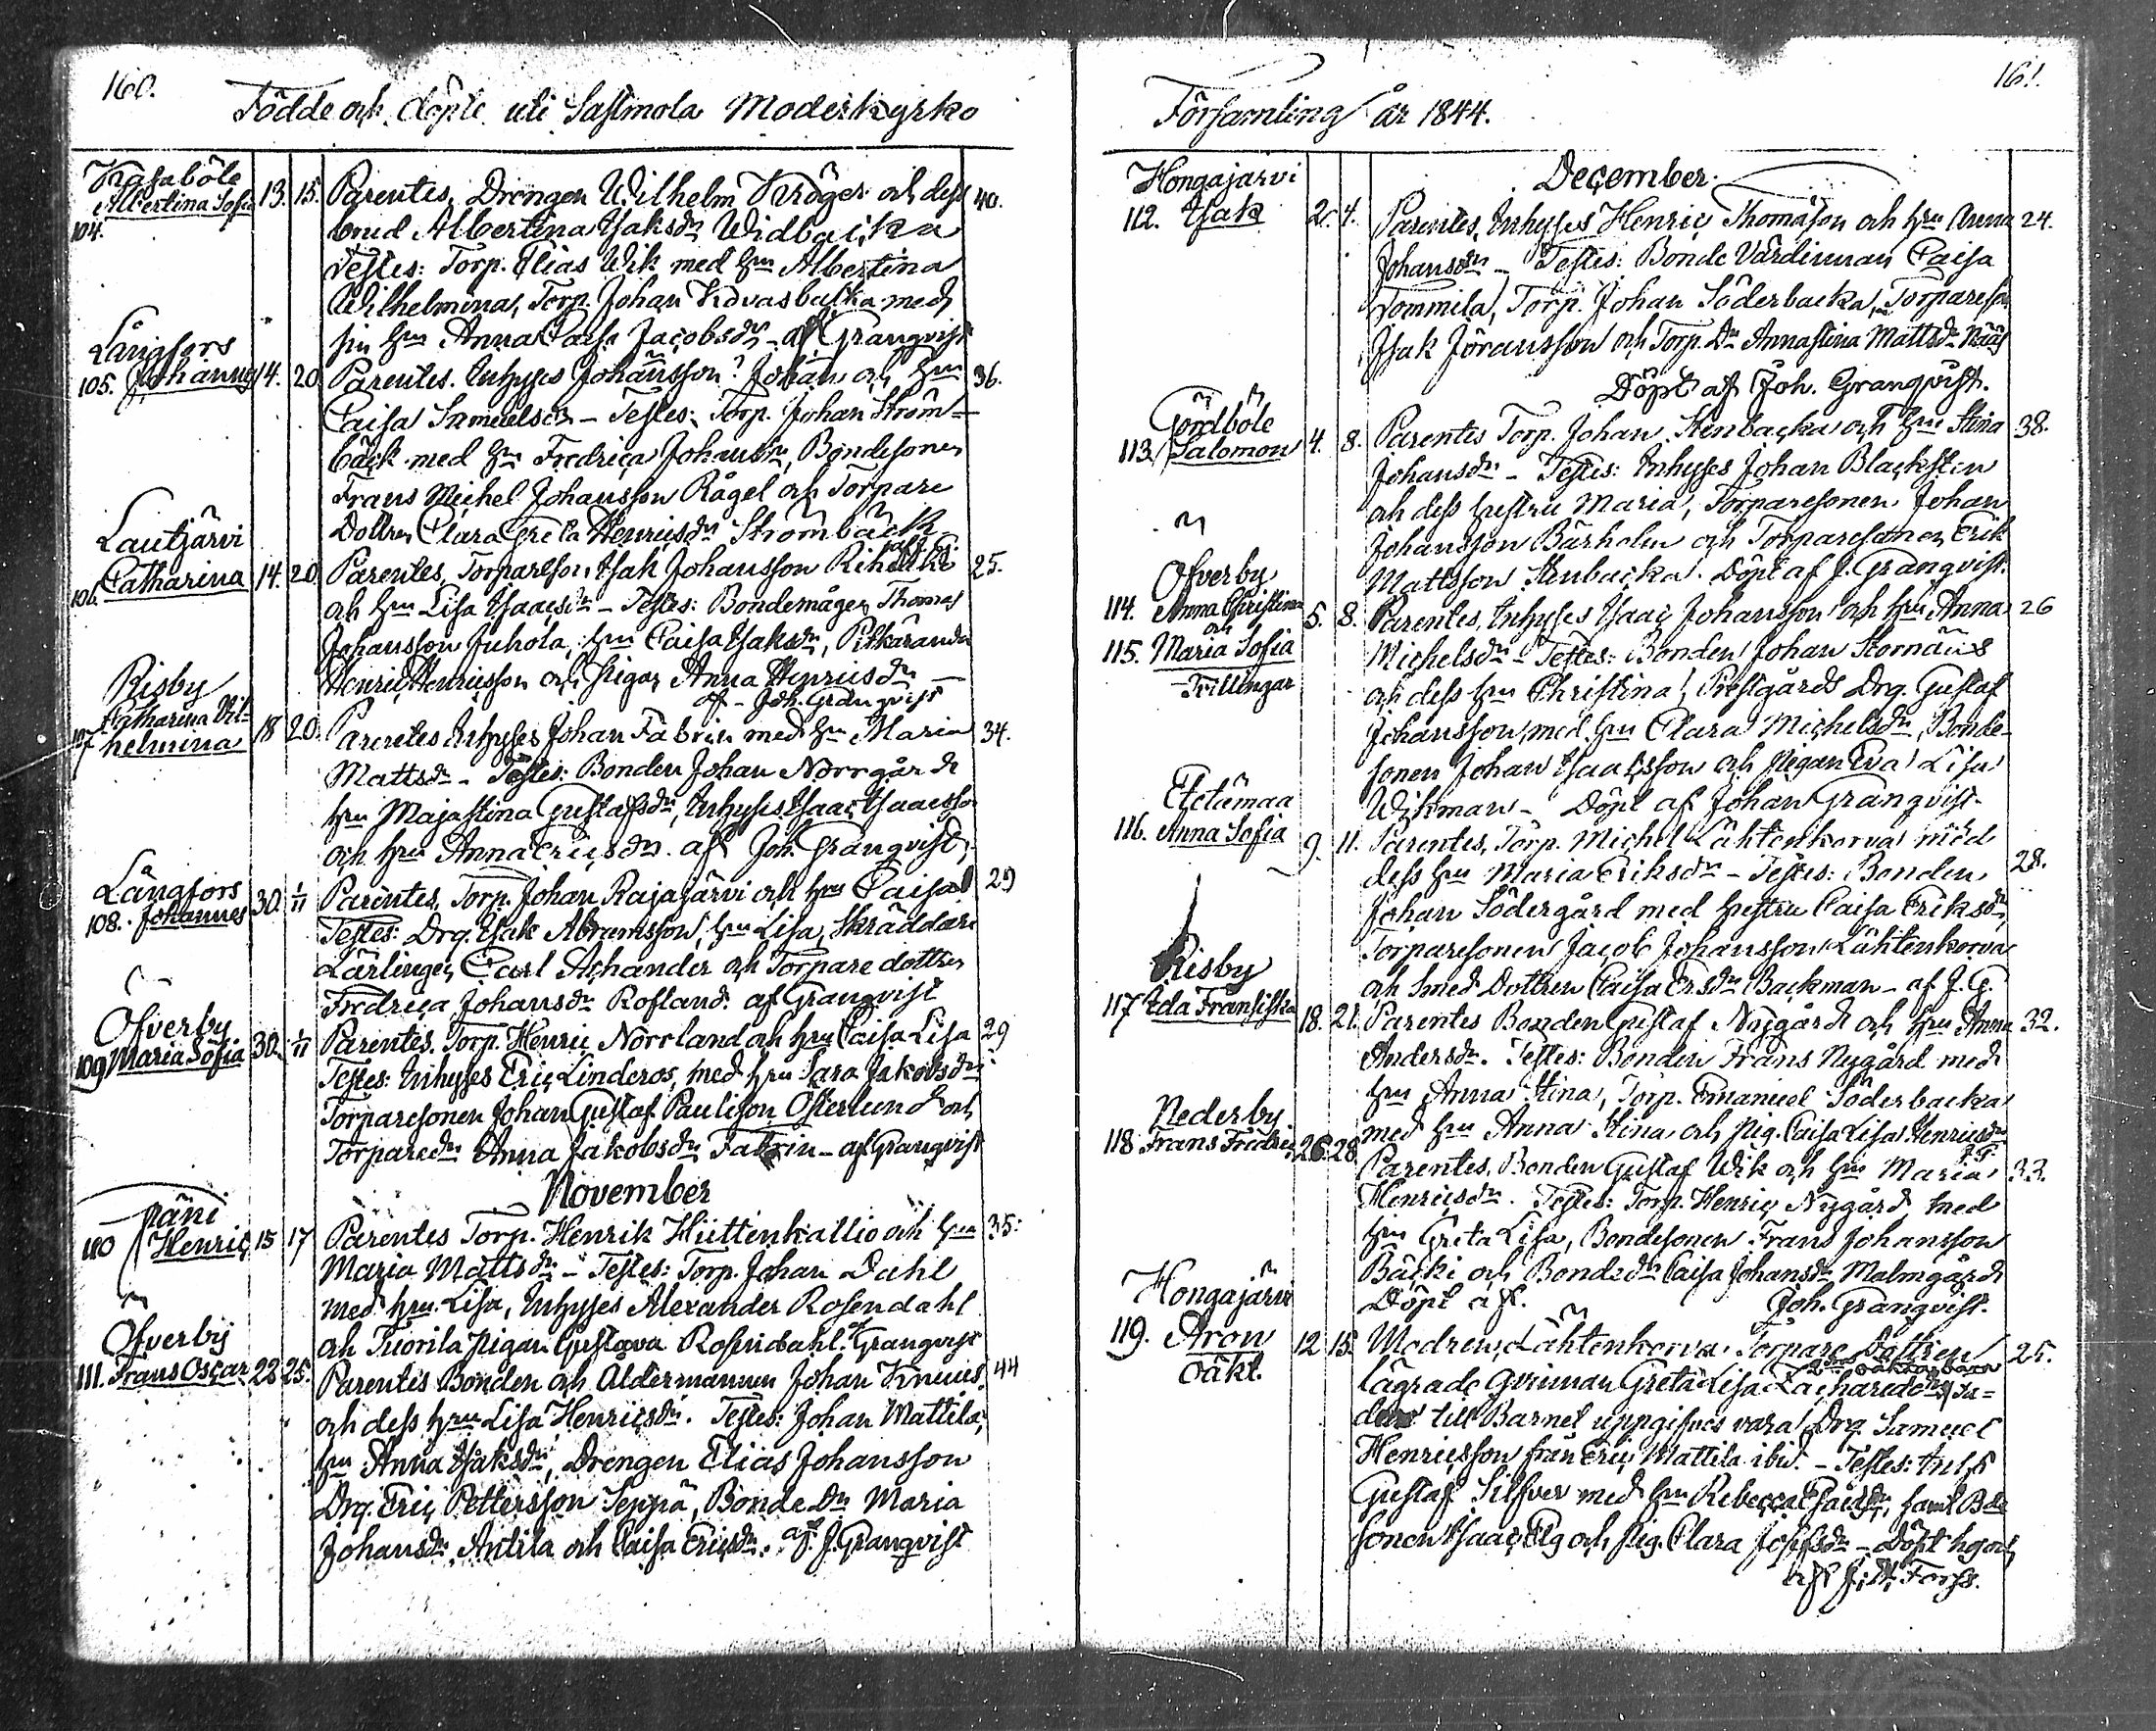 160.
Födde och döpte uti Sastmola Moderkyrko
Kasaböle
Albertina Sofia 13. 15.
104.
Parentes, Drengen Wilhelm Kröger och dess 40.
brud Albertina Isaksdr Widbacka
Testes: Torp. Elias Wik med hru Albertina
Wilhelmina, Torp. Johan med
sin hru Anna Caisa Jacobsdr - af Granqvist
Långfors
105. Johannes 14. 20
Parentes. Inhyses Johansson? Johan och hru 36.
Caisa Samuelsdr - Testes: Torp. Johan Ström-
bäck med hru Fredrica Johansdr, Bondesonen
Frans Michel Johansson Rågel och Torpare
Dottren Clara Greta Henricsdr Strömbäck
Lautjärvi
106. Catharina 14. 20
Parentes, Torpareson Isak Johansson 25.
och hru Lisa Isaacsdr - Testes: Bondemågen Thomas
Johansson Juhola, hru Caisa Isaksdr, Pitkäranda
Henric Henricsson och pigan Anna Henricsdr -
af - Joh. Granqvist
Risby
Catharina Vil-
107 helmina 18 20.
Parentes Inhyses Johan Fabrin med hru Maria 34.
Mattsdr - Testes: Bonden Johan Norrgård
hru Majastina Gustafsdr, Inhyses Isaac Isaacsson
och hru Anna Ericsdr. af Joh. Granqvist,
Långfors
108. Johannes 30. 1/11
Parentes, Torp. Johan Rajajärvi och hru Caisa 29
Testes: Drg. Isak Abramsson, hru Lisa, Skräddare
Lärlingen Carl Achander och Torpare dottren
Fredrica Johansdr Rofland. af Granqvist
Öfverby
109 Maria Sofia 30. 1/11
Parentes. Torp. Henric Norrland och hru Caisa Lisa 29
Testes: Inhyses Eric Linderos, med hru Sara Jakobsdr
Torparesonen Johan Gustaf Paulison Österlund och
Torparedr Anna Jakobsdr Fabrin - af Granqvist
November
Päni
110 Henric 15 17
Parentes Torp. Henrik Hiittenkallio och hru 35.
Maria Mattsdr - Testes: Torp. Johan Dahl
med hru Lisa, Inhyses Alexander Rosendahl
och Tuorila pigan Gustava Rosendahl. af Granqvist
Öfverby
111. Frans Oscar 22 25.
Parentes Bonden och Åldermannen Johan Knuus. 44
och dess hru Lisa Henricsdr. Testes: Johan Mattila,
hru Anna Isaksdr, Drengen Elias Johansson
Drg. Eric Pettersson Seppä, Bonde Dr Maria
Johansdr Antila och Caisa Ericsdr. af J. Granqvist
161.
Församling år 1844.
December.
Hongajärvi
112. Isak 2. 4.
Parentes, Inhyses Henric Thomasson och hru Anna 24.
Johansdr - Testes: Bonde Värdinnan Caisa
Tommila, Torp. Johan Söderbacka, Torpareson
Isak Jöransson och Torp. Dr Annastina Mattsdr Nääs
Döpt af Joh. Granqvist.
Gördböle
113. Salomon 4. 8.
Parentes Torp. Johan Stenbacka och hru Stina 38.
Johansdr - Testes: Inhyses Johan Blacksten
och dess hustru Maria, Torparesonen Johan
Johansson Bärholm och Torparesonen Erik
Mattsson Stenbacka. Döpt af J. Granqvist.
Öfverby
114. Anna Christina
och
115. Maria Sofia
Tvillingar
5. 8.
Parentes, Inhyses Isaac Johansson och hru Anna 26
Michelsdr - Testes: Bonden Johan Stornäus
och dess hru Christina, Prestgårds Drg. Gustaf
Johansson med hru Clara Michelsdr, Bonde-
sonen Johan Isaacsson och pigan Eva Lisa
Wikman - Döpt af Johan Granqvist.
Etelämaa
116. Anna Sofia 9. 11.
Parentes, Torp. Michel Lähtenkorva med
dess hru Maria Eriksdr - Testes: Bonden 28.
Johan Södergård med hustru Caisa Eriksdr,
Torparesonen Jacob Johansson Lähtenkorva
och Smed Dottren Caisa Ersdr Backman - af J. G.
Risby
117 Ida Fransiska 18. 21.
Parentes Bonden Gustaf Nygård och hru Anna 32.
Andersdr. Testes: Bonden Frans Nygård med
hru Anna Stina, Torp. Emanuel Söderbacka
med hru Anna Stina och pig. Caisa Lisa Henricsdr
J. G.
Nederby
118 Frans Fredric 26 28
Parentes, Bonden Gustaf Wik och hru Maria 33.
Henricsdr. Testes: Torp. Henric Nygård med
hru Greta Lisa, Bondesonen Frans Johansson
Bäcki och Bondedr Caisa Johansdr Malmgård
Döpt af. Joh. Granqvist.
Hongajärvi
119. Aron 12 15.
oäkt.
Modren, Lähtenkorva Torpare Dottren 25.
lägrade qvinnan Greta Lisa Zachariedr, fa-
dren till Barnet uppgifves vara Drg. Samuel
Henricsson från Eric Mattila ibid. - Testes: Inhs
Gustaf Silfver med hru Rebecca Isacsdr, samt Bde
sonen Isaac Elg och pig. Clara Josefsdr - Döpt
af Forss.